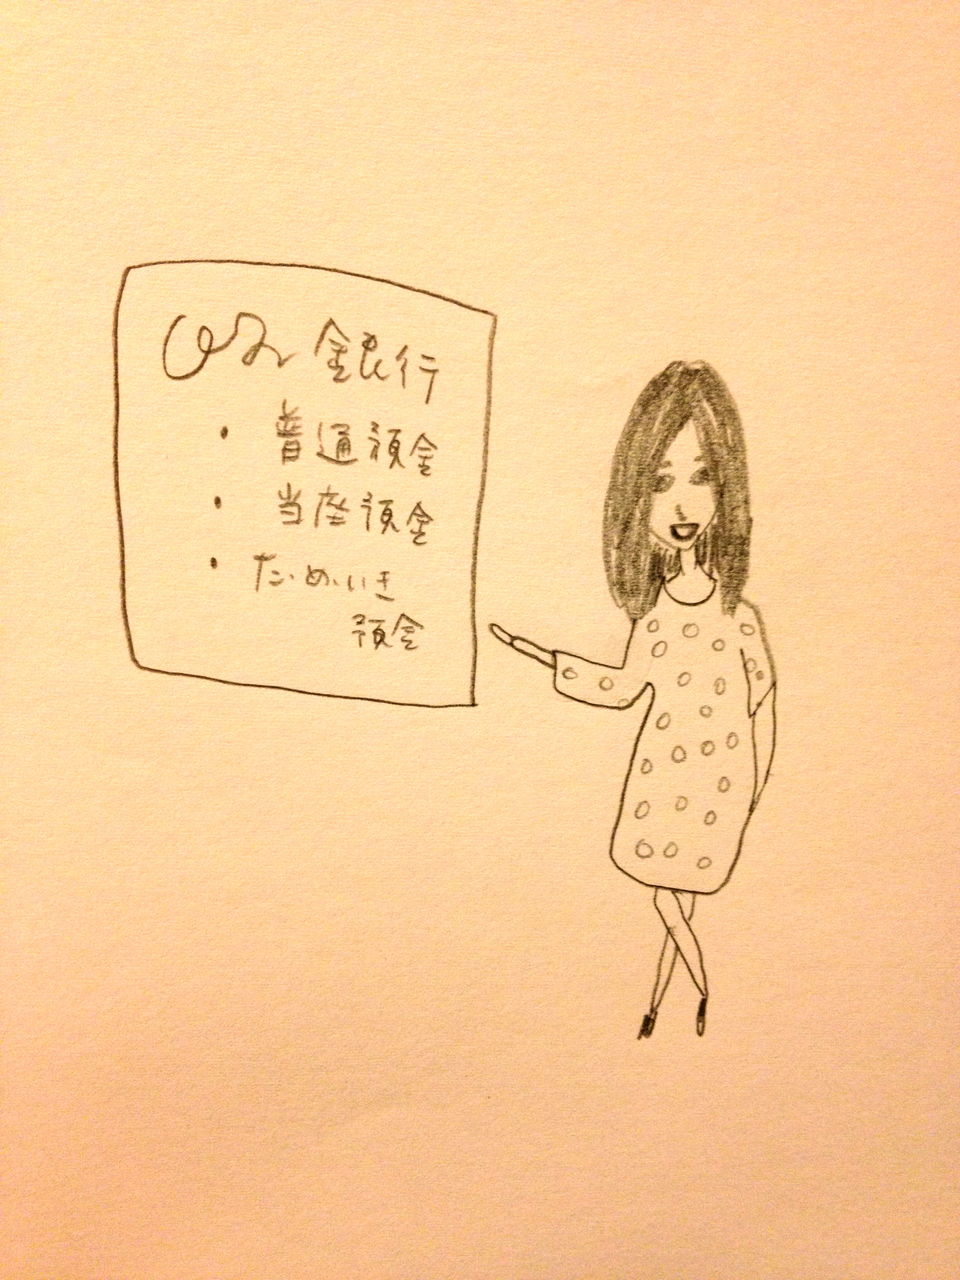 銀行
・普通預金
・当座預金
・ためいき
預金